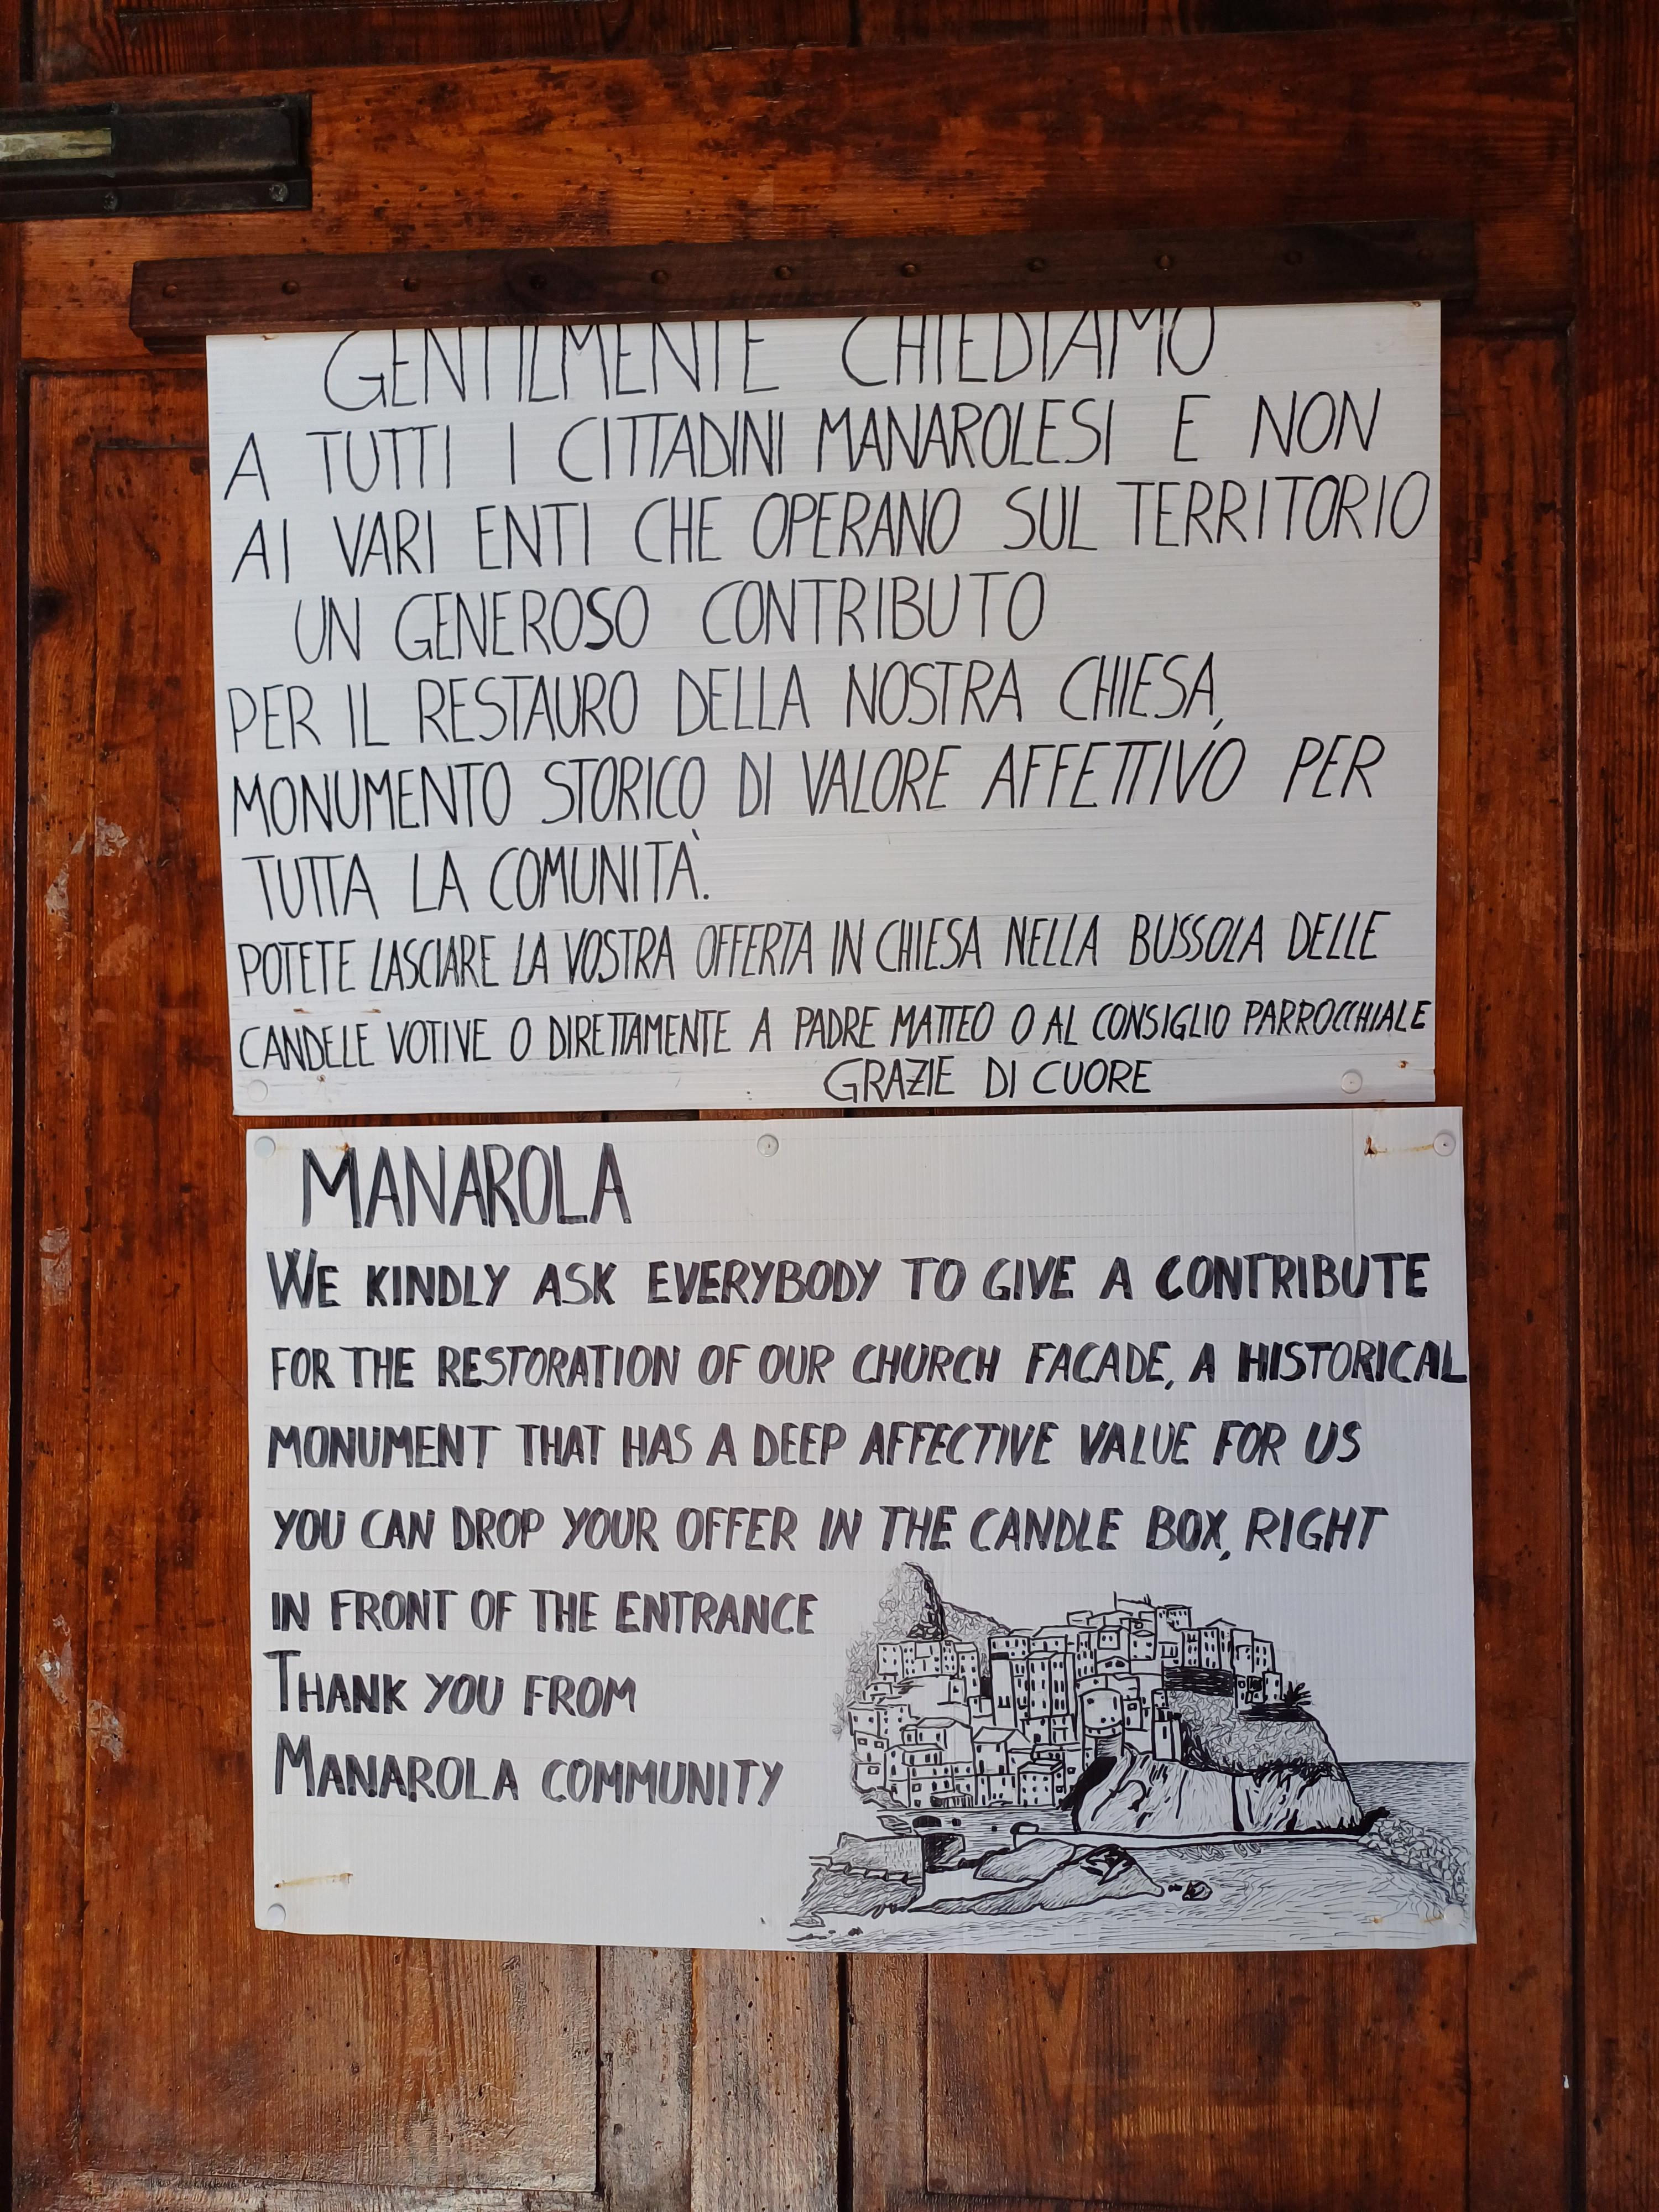 GENTILMENTE CHIEDIAMO
A TUTTI I CITTADINI MANAROLESI E NON
AI VARI ENTI CHE OPERANO SUL TERRITORIO
UN GENEROSO CONTRIBUTO
PER IL RESTAURO DELLA NOSTRA CHIESA,
MONUMENTO STORICO DI VALORE AFFETTIVO PER
TUTTA LA COMUNITÀ.
POTETE LASCIARE LA VOSTRA OFFERTA IN CHIESA NELLA BUSSOLA DELLE
CANDELE VOTIVE O DIRETTAMENTE A PADRE MATTEO O AL CONSIGLIO PARROCCHIALE
GRAZIE DI CUORE
MANAROLA
WE KINDLY ASK EVERYBODY TO GIVE A CONTRIBUTE
FOR THE RESTORATION OF OUR CHURCH FACADE, A HISTORICAL
MONUMENT THAT HAS A DEEP AFFECTIVE VALUE FOR US
YOU CAN DROP YOUR OFFER IN THE CANDLE BOX, RIGHT
IN FRONT OF THE ENTRANCE
THANK YOU FROM
MANAROLA COMMUNITY